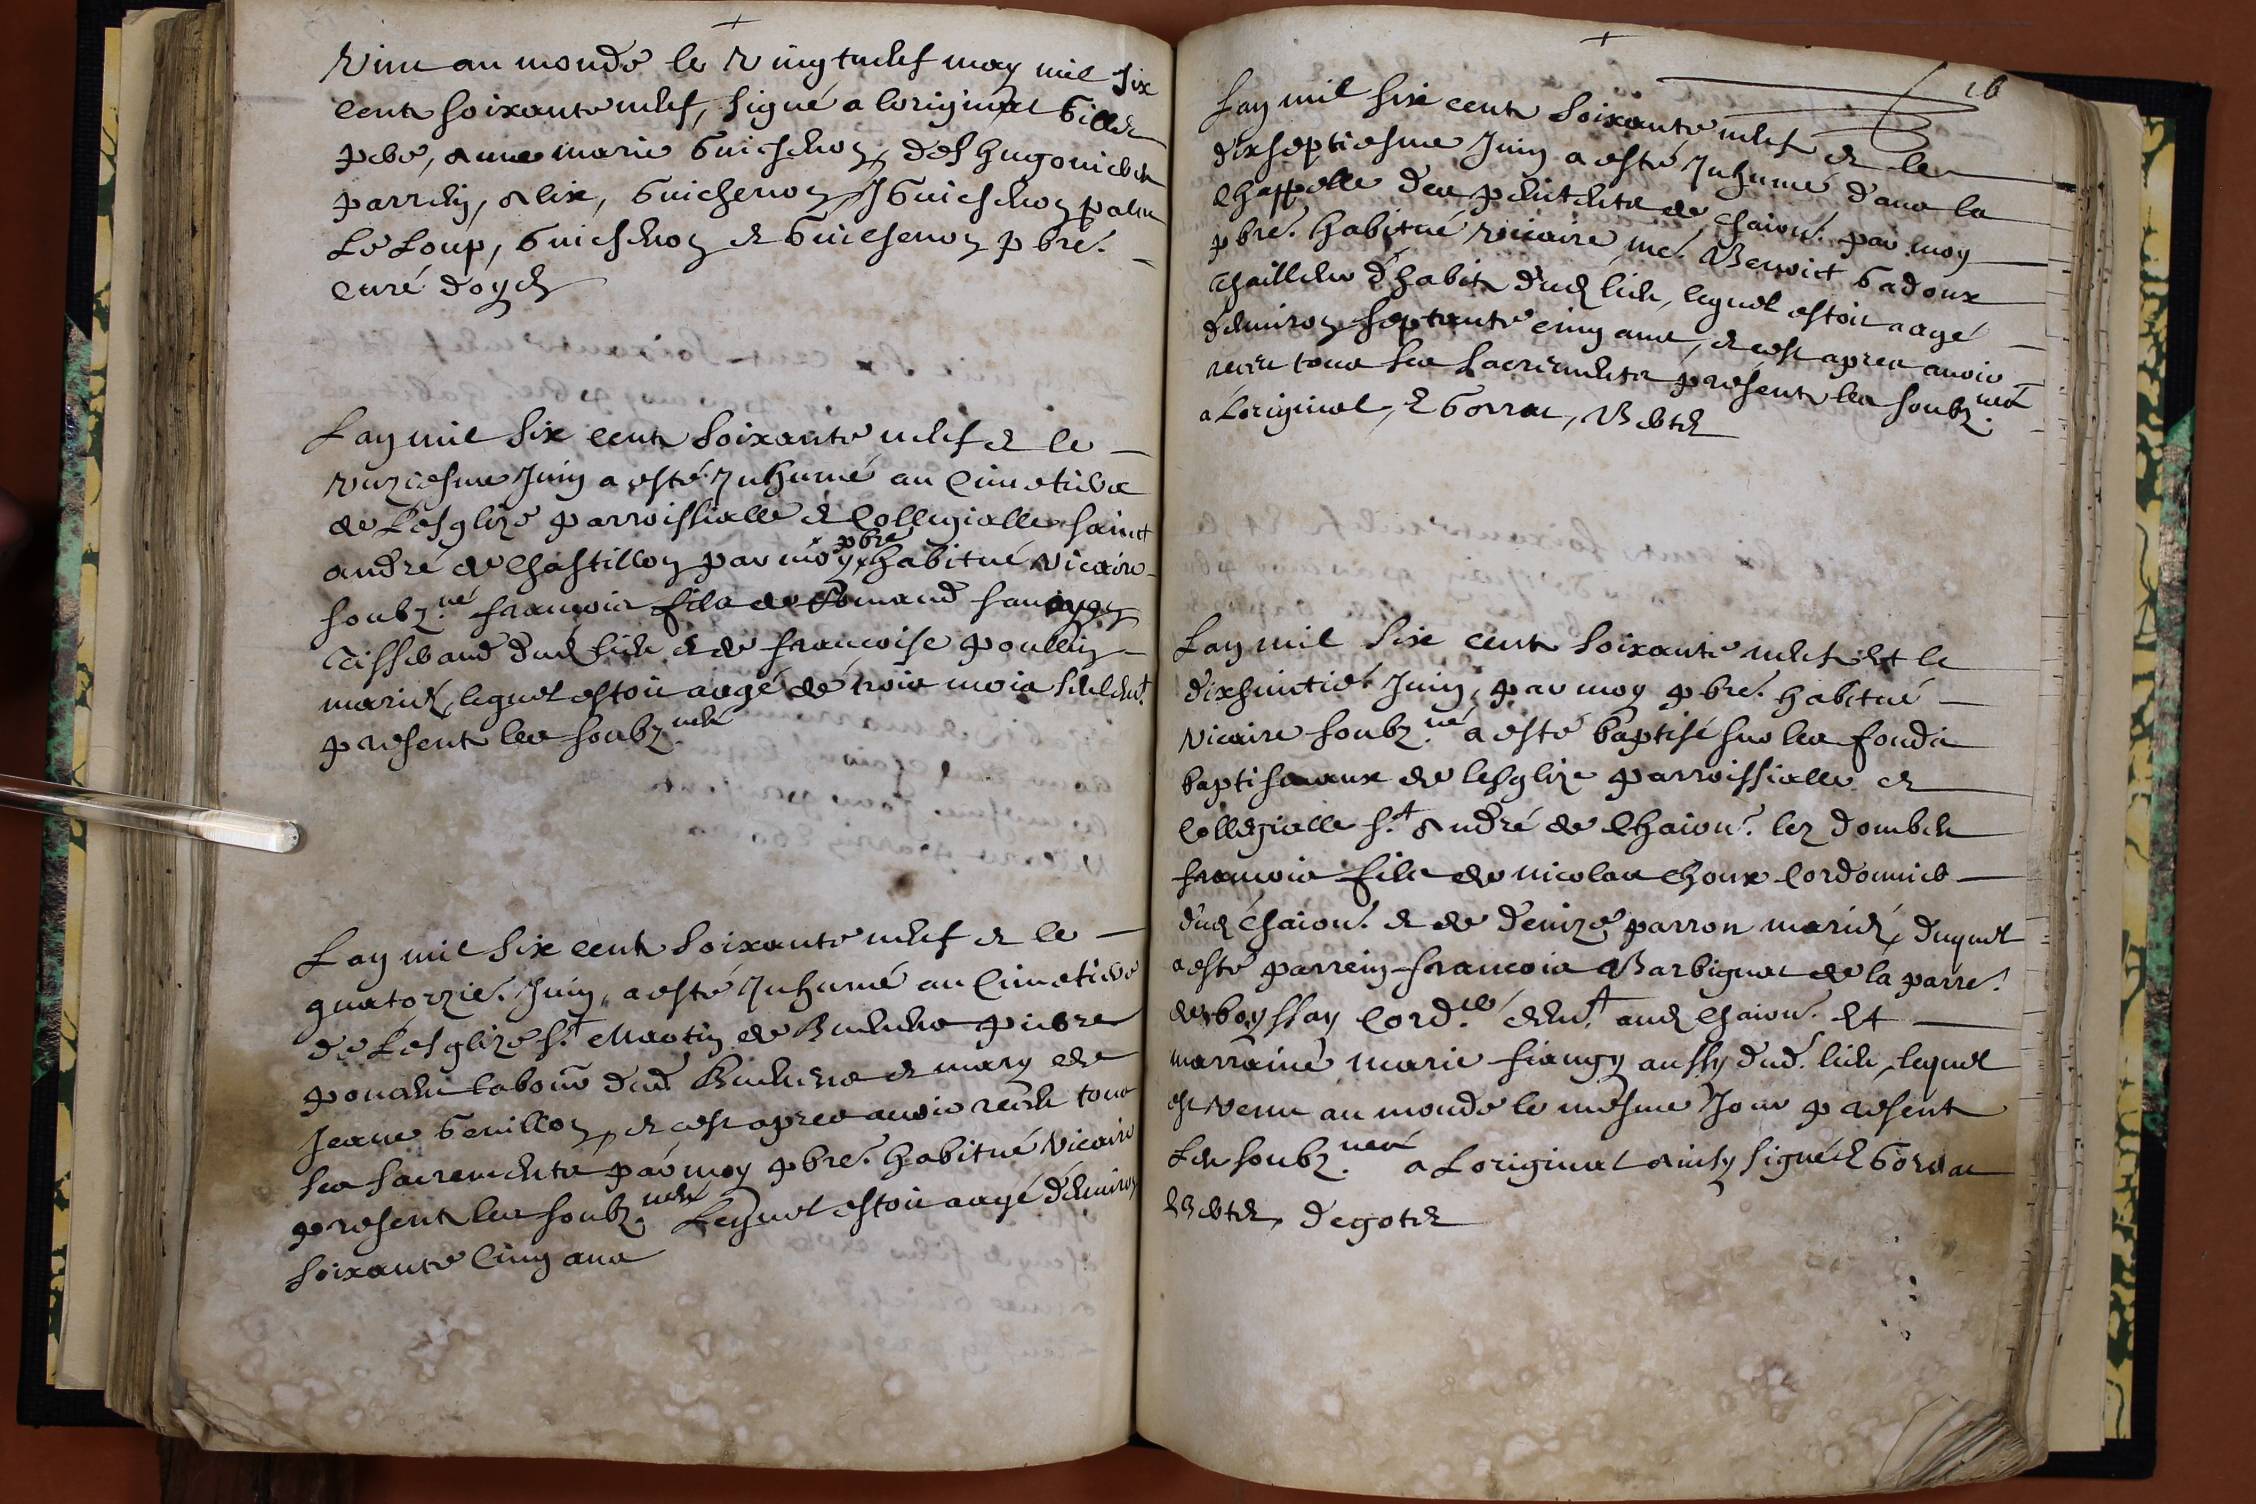 vint au monde le vingtneuf may mil six
cents soixante neuf, signé a loriginal Gilles
pere, anne marie Guichenon, des hugonieres
parrein, alix, Guichenon, J Guichenon,
Le Loup, Guichenon et Guichenon pbre.
curé doyen
Lan mil six cents soixante neuf et le
unziesme Juin a esté Inhumé au Cimetiere
de Lesglize parroissialle et Collegialle sainct
andré de Chastillon par moy pbre habitué vicaire
soubz.né francois fils de
Tisserand dud lieu et de francoise poullin
mariez, lequel estoit aagé de trois mois seulemt.
presents les soubz.nez
Lan mil six cents soixante neuf et le
quatorzie. Juin, a esté Inhumé au Cimetiere
de Lesglize st. Martin de Buenens pierre
labour dud Buenens et mary de
Jeane Genillon, et cest apres avoir receu tous
ses sacrements par moy pbre. habitué vicaire
presents les soubz.nez Lequel estoit aagé denviron
soixante Cinq ans
16
Lan mil six cents soixante neuf et le
dixseptiesme Juin a esté Inhumé dans la
Chappelle des penitents de Chaion. par moy
pbre. habitué vicaire me. Benoict Gadoux
Thailleur d'habits dud lieu, lequel estoit aagé
denviron septante cinq ans, et cest apres avoir
receu tous ses sacrements presents les soubz.nez
a Loriginal, E Gorrat,
Lan mil six cents soixante neuf Et le
dixhuictie. Juin, par moy pbre. habitué
vicaire soubz.né a esté baptisé sur les fondz
baptismaux de lesglize parroissialle et
Collegialle st. André de Chaion. lez dombes
francois fils de nicolas Choux Cordonnier
dud Chaion. et de denize parron mariez, duquel
a esté parrein francois Barbignat de la parre.
de boyssay Cord.er demt. aud Chaion. Et
marraine marie fiangy aussy dud. lieu, lequel
est venu au monde le mesme Jour presents
Les soubz.nez a Loriginal ainsy signé E Gorrat
degoter